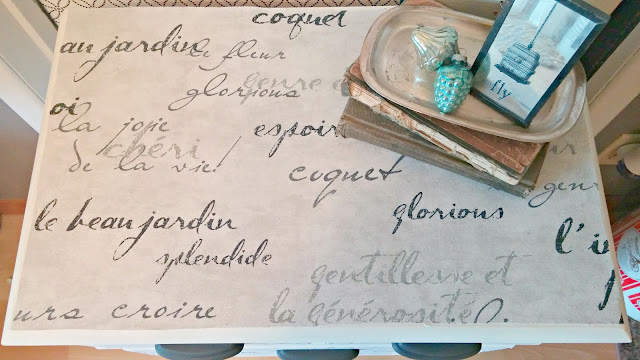 coquet
au jardin
le fleur
genre
glorious
oi
la joie
cheri
de la vie!
espoir
coquet
glorious
le beau jardin
splendide
gentillesse et
la générosité
urs croire
genr
l'i
fly